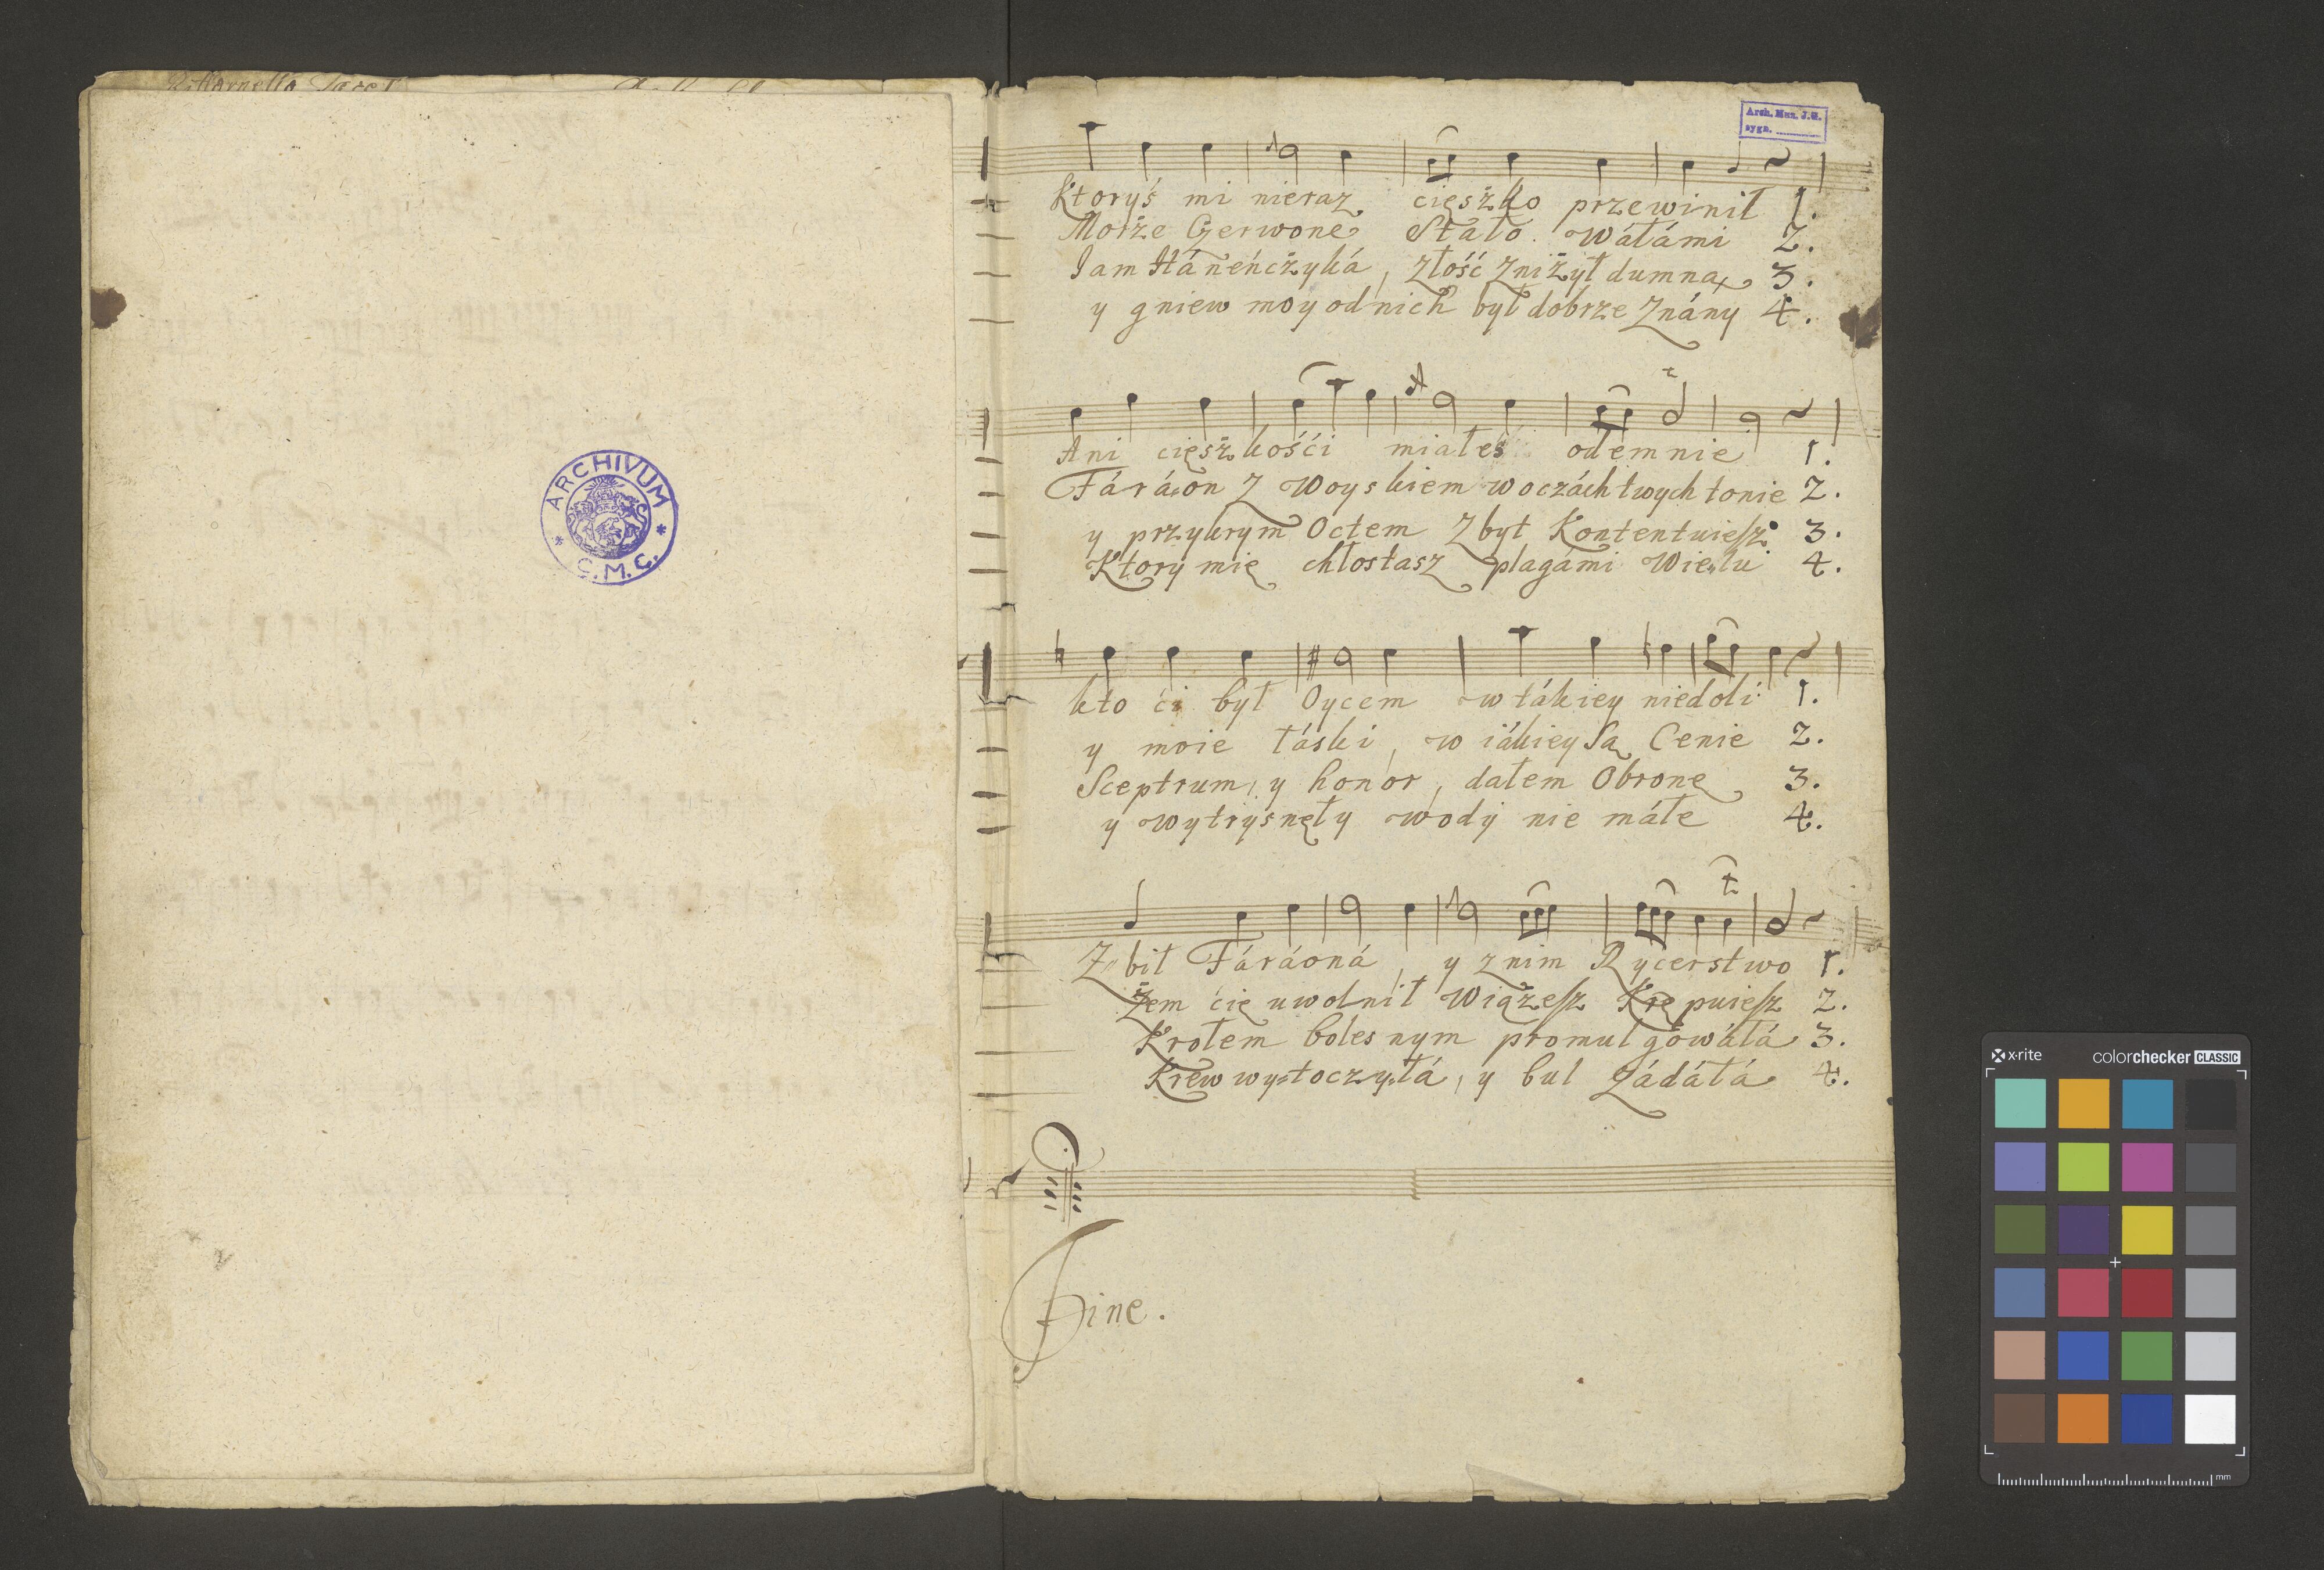 Rittornello Tacet
ARCHIVUM
C.M.C.
Arch. Muz. J.G.
sygn.
Ktoryś mi nieraz cięszko przewinił 1.
Morże Czerwone Stało wáłámi 2.
Jam Háneńcżyká, złość zniżył dumną 3.
y gniew moy od nich był dobrze Znány 4.
t
Ani cięszkośći miałeś odemnie 1.
Fáráon z woyskiem w oczách twych tonie 2.
y przykrym Octem zbyt Kontentuiesz 3.
Ktory mię chłostasz plagámi wielu 4.
kto ći był Oycem w tákiey niedoli 1.
y moie łáski, w iákiey Są Cenie 2.
Sceptrum, y honor, dałem Obronę 3.
y wytrysnęły wody nie máłe 4.
t.
Z"bił Fáráoná, y z nim Rycerstwo 1.
Żem ćię uwolnił wiążesz Krępuiesz 2.
Krolem bolesnym promulgowáłá 3.
Krew wy=toczyłá, y bul Zádáłá 4.
Fine.
x-rite
colorchecker CLASSIC
mm